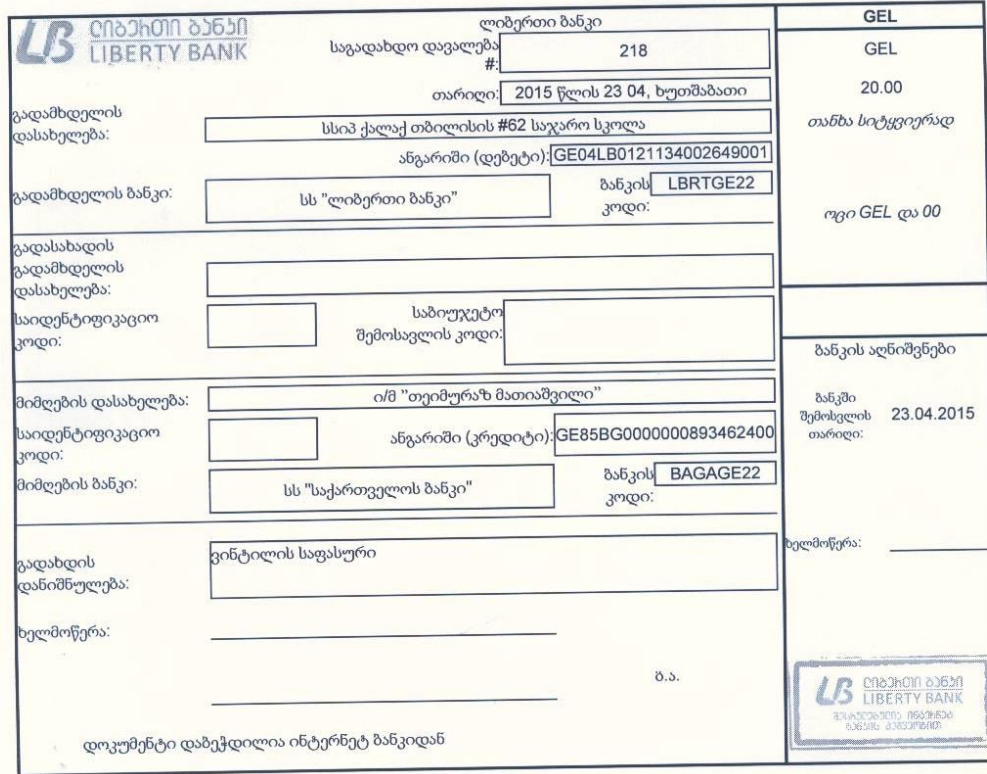 ლიბერთი ბანკი
LIBERTY BANK
ლიბერთი ბანკი
საგადახდო დავალება #: 218
თარიღი: 2015 წლის 23 04, ხუთშაბათი
გადამხდელის დასახელება: სსიპ ქალაქ თბილისის #62 საჯარო სკოლა
ანგარიში (დებეტი): GE04LB0121134002649001
გადამხდელის ბანკი: სს "ლიბერთი ბანკი" ბანკის კოდი: LBRTGE22
გადასახადის გადამხდელის დასახელება:
საიდენტიფიკაციო კოდი: საბიუჯეტო შემოსავლის კოდი:
მიმღების დასახელება: ი/მ "თეიმურაზ მათიაშვილი"
საიდენტიფიკაციო კოდი: ანგარიში (კრედიტი): GE85BG0000000893462400
მიმღების ბანკი: სს "საქართველოს ბანკი" ბანკის კოდი: BAGAGE22
გადახდის დანიშნულება: ვინტილის საფასური
ხელმოწერა:
ბ.ა.
დოკუმენტი დაბეჭდილია ინტერნეტ ბანკიდან
GEL
GEL
20.00
თანხა სიტყვიერად
ოცი GEL და 00
ბანკის აღნიშვნები
ბანკში შემოსვლის თარიღი: 23.04.2015
ხელმოწერა:
ლიბერთი ბანკი
LIBERTY BANK
შესრულებულია ინტერნეტ
ბანკის მეშვეობით